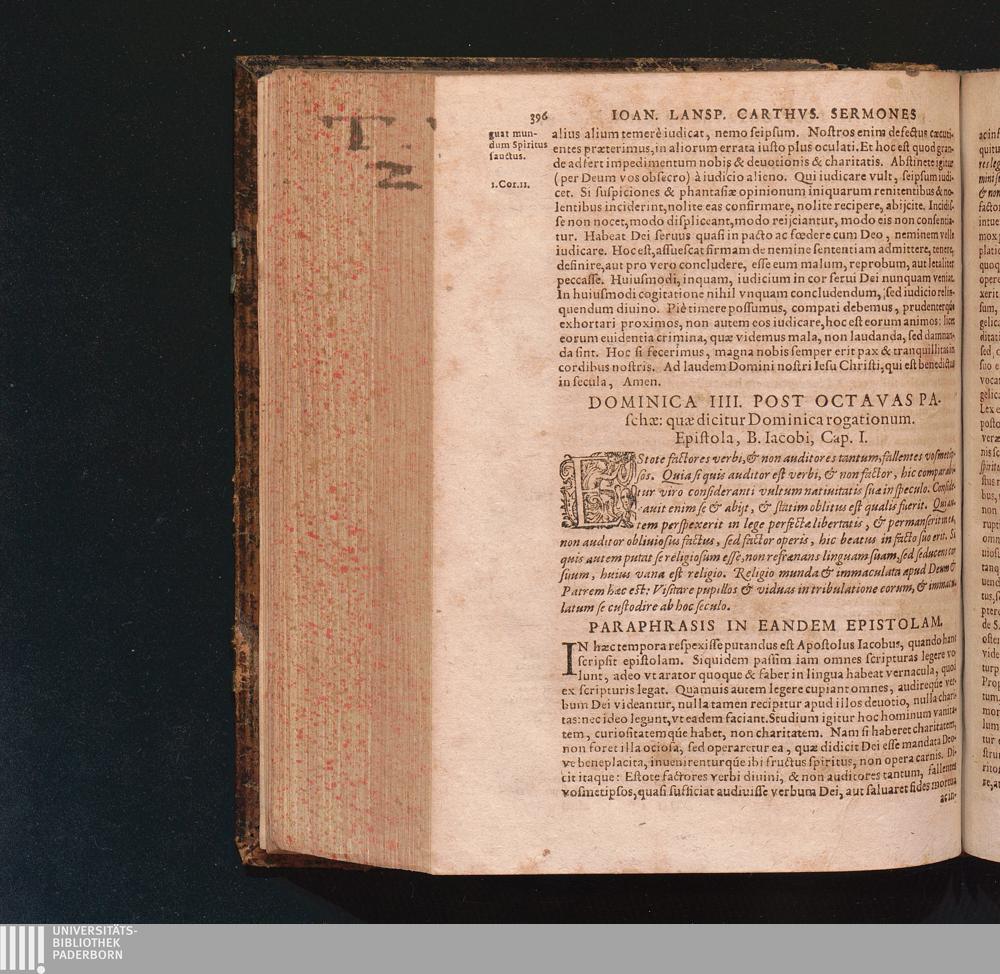 396 IOAN. LANSP. CARTHVS. SERMONES
guat mun-
dum Spiritus
sanctus.
1.Cor.11.
alius alium temerè iudicat, nemo seipsum. Nostros enim defectus cæcuti-
entes præterimus, in aliorum errata iusto plus oculati. Et hoc est quod gran-
de adfert impedimentum nobis & deuotionis & charitatis. Abstinete igitur
(per Deum vos obsecro) à iudicio alieno. Qui iudicare vult, seipsum iudi-
cet. Si suspiciones & phantasiæ opinionum iniquarum renitentibus & no-
lentibus inciderint, nolite eas confirmare, nolite recipere, abijcite. Incidis-
se non nocet, modo displiceant, modo reijciantur, modo eis non consentia-
tur. Habeat Dei seruus quasi in pacto ac fœdere cum Deo, neminem velle
iudicare. Hoc est, assuescat firmam de nemine sententiam admittere, tenere,
definire, aut pro vero concludere, esse eum malum, reprobum, aut letaliter
peccasse. Huiusmodi, inquam, iudicium in cor serui Dei nunquam veniat.
In huiusmodi cogitatione nihil vnquam concludendum, sed iudicio relin-
quendum diuino. Piè timere possumus, compati debemus, prudenterque
exhortari proximos, non autem eos iudicare, hoc est eorum animos: licet
eorum euidentia crimina, quæ videmus mala, non laudanda, sed damnan-
da sint. Hoc si fecerimus, magna nobis semper erit pax & tranquillitas in
cordibus nostris. Ad laudem Domini nostri Iesu Christi, qui est benedictus
in secula, Amen.
DOMINICA IIII. POST OCTAVAS PA-
schæ: quæ dicitur Dominica rogationum.
Epistola, B. Iacobi, Cap. I.
EStote factores verbi, & non auditores tantum, fallentes vosmetip-
sos. Quia si quis auditor est verbi, & non factor, hic comparabi-
tur viro consideranti vultum natiuitatis suæ in speculo. Conside-
rauit enim se & abijt, & statim oblitus est qualis fuerit. Qui au-
tem perspexerit in lege perfectæ libertatis, & permanserit in ea,
non auditor obliuiosus factus, sed factor operis, hic beatus in facto suo erit. Si
quis autem putat se religiosum esse, non refrænans linguam suam, sed seducens cor
suum, huius vana est religio. Religio munda & immaculata apud Deum &
Patrem hæc est: Visitare pupillos & viduas in tribulatione eorum, & immacu-
latum se custodire ab hoc seculo.
PARAPHRASIS IN EANDEM EPISTOLAM.
IN hæc tempora respexisse putandus est Apostolus Iacobus, quando hanc
scripsit epistolam. Siquidem passim iam omnes scripturas legere vo-
lunt, adeo vt arator quoque & faber in lingua habeat vernacula, quod
ex scripturis legat. Quamuis autem legere cupiant omnes, audireque ver-
bum Dei videantur, nulla tamen recipitur apud illos deuotio, nulla chari-
tas: nec ideo legunt, vt eadem faciant. Studium igitur hoc hominum vanita-
tem, curiositatemque habet, non charitatem. Nam si haberet charitatem,
non foret illa ociosa, sed operaretur ea, quæ didicit Dei esse mandata Deo-
ve beneplacita, inuenirenturque ibi fructus spiritus, non opera carnis. Di-
cit itaque: Estote factores verbi diuini, & non auditores tantum, fallentes
vosmetipsos, quasi sufficiat audiuisse verbum Dei, aut saluaret fides mortua
UNIVERSITÄTS-
BIBLIOTHEK
PADERBORN